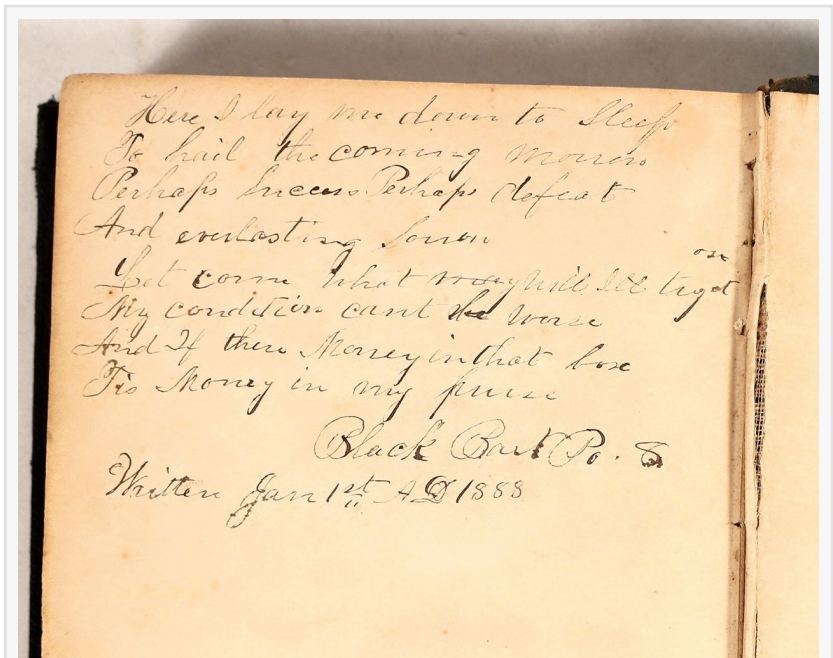 Here I lay me down to Sleep
To hail the coming morrow
Perhaps Success Perhaps defeat
And everlasting Sorrow
Let come what may will I'll try it on
My condition cant be worse
And If there Money in that box
Tis Money in my purse
Black Bart Po. 8
Written Jan 1st AD 1888